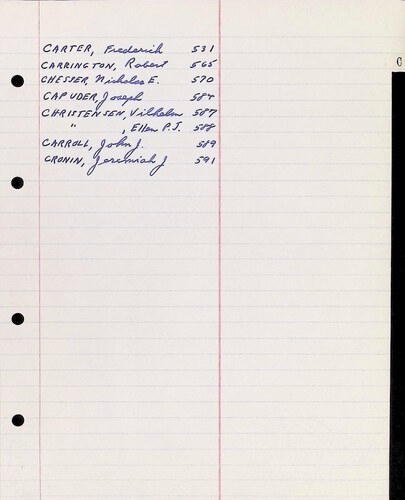 C
CARTER, Frederick 531
CARRINGTON, Robert 565
CHESSER, Nicholas E. 570
CAPUDER, Joseph 584
CHRISTENSEN, Vilhelm 587
" , Ellen P.J. 588
CARROLL, John J. 589
CRONIN, Jeremiah J 591